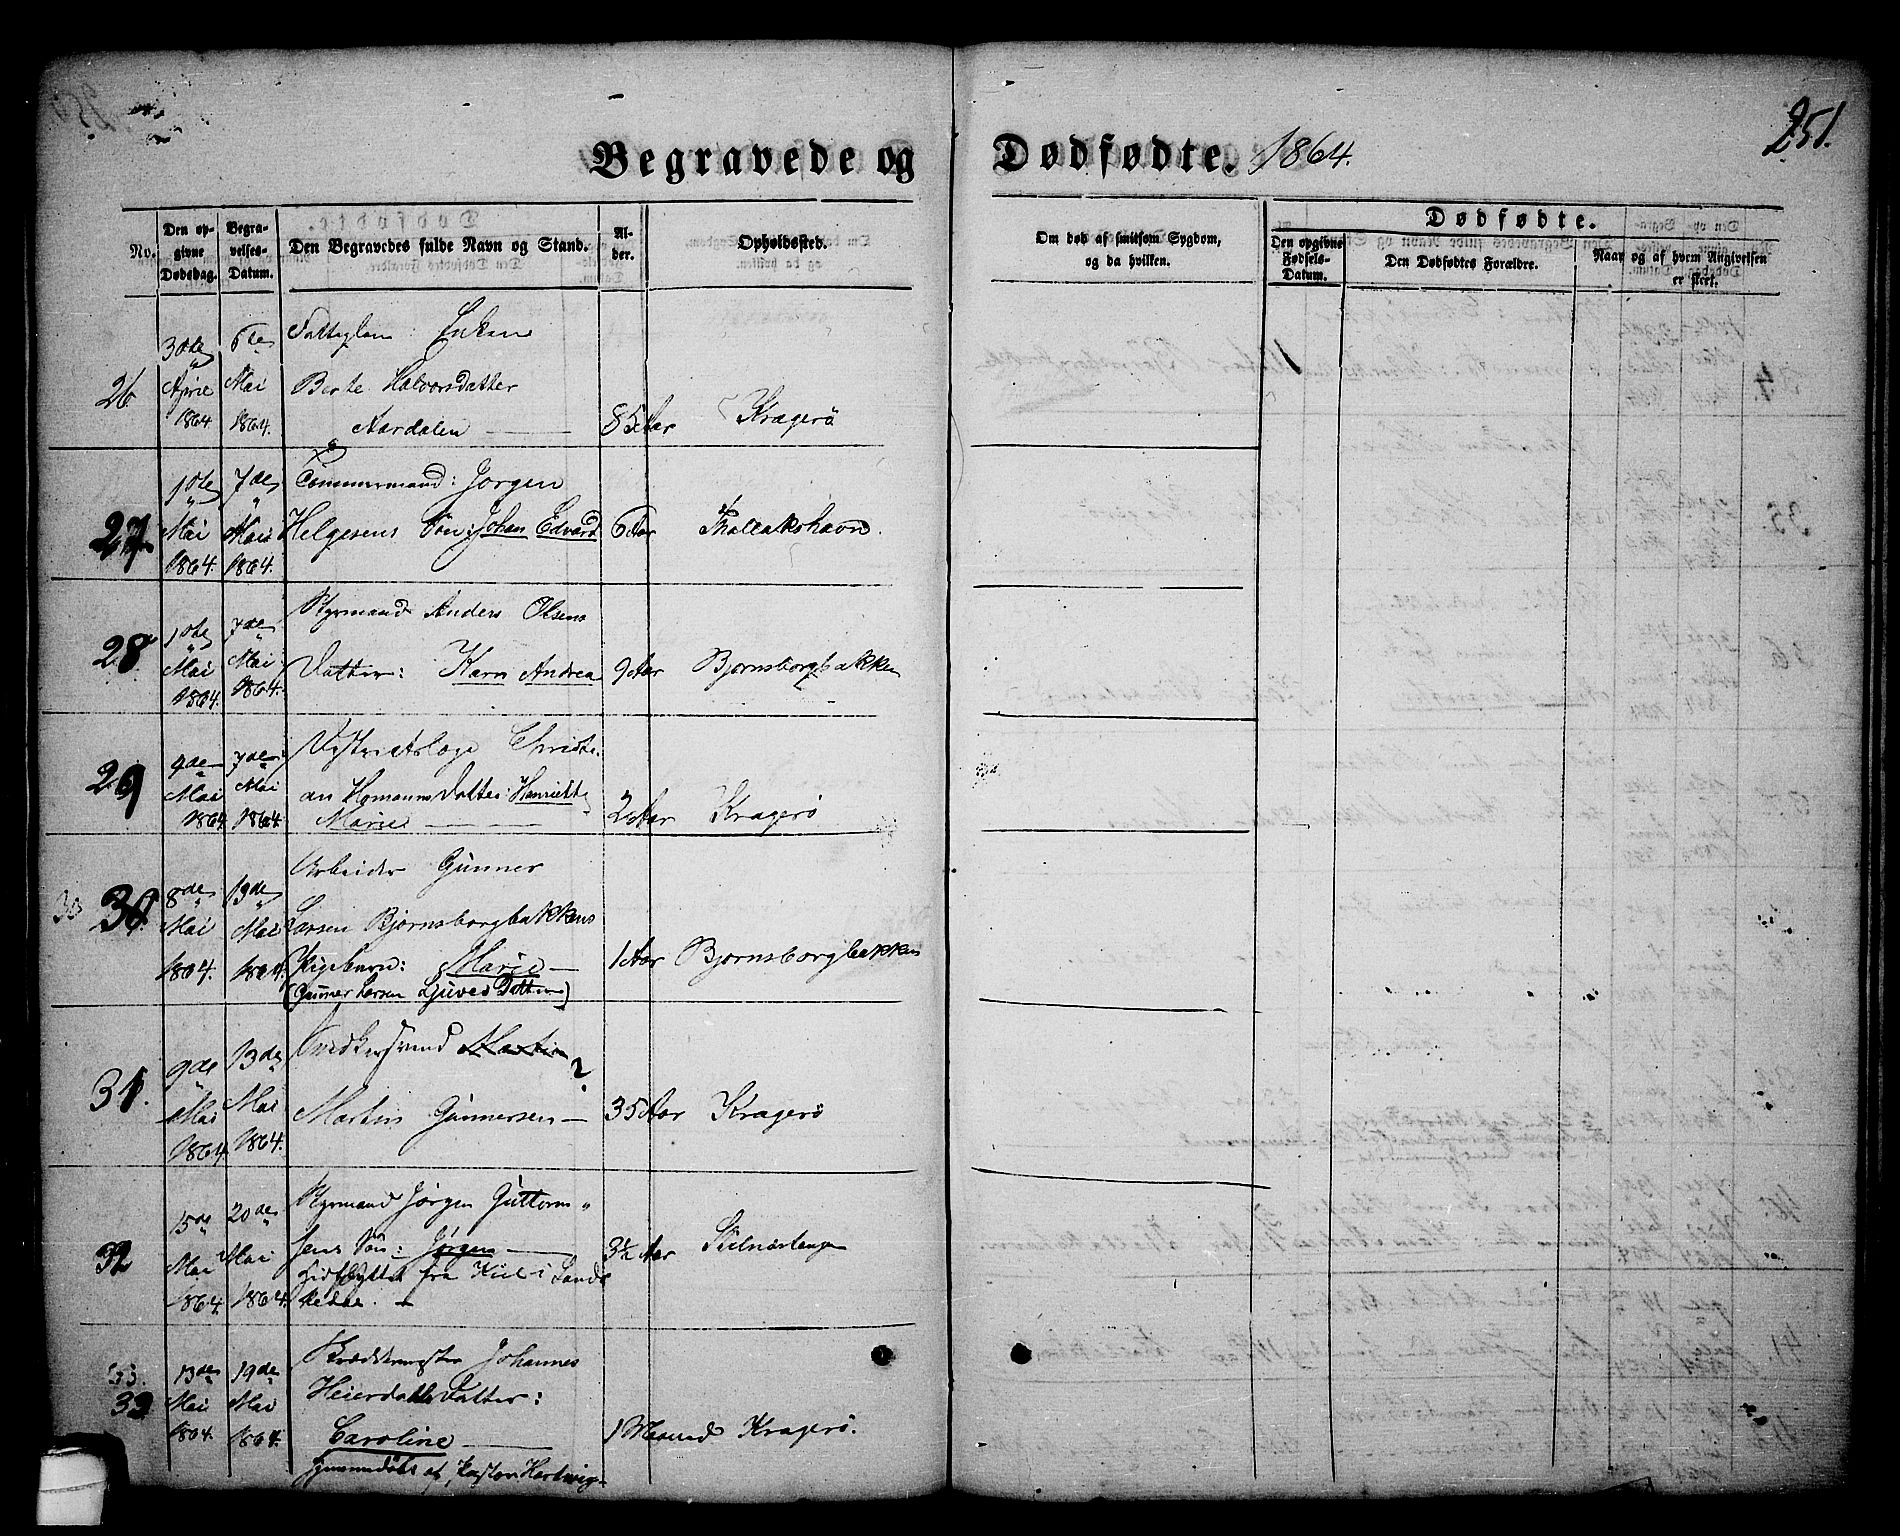 251.
Begravede og Dødfødte. 1864.
No.
Den opgivne Dødsdag.
Begravelses-Datum.
Den Begravedes fulde Navn og Stand.
Alder.
Opholdssted.
Om død af smitsom Sygdom, og da hvilken.
Dødfødte.
Den opgivne Fødsels-Datum.
Den Dødfødtes Forældre.
Naar og af hvem Angivelsen er skeet.
26.
30te April 1864
6te Mai 1864.
Fattiglem: Enken
Berte Halvorsdatter
Aardalen
85 Aar
Kragerö
27
1ste Mai 1864.
7de Mai 1864.
Tömmermand: Jörgen
Helgesens Sön: Johan Edvard
6 Aar
Thallakshavn.
28
1ste Mai 1864.
7de Mai 1864.
Styrmand Anders Olsens
Datter: Karn Andrea
9 Aar
Bjornsborgbakken
29
4de Mai 1864.
7de Mai 1864.
Districtslæge Christi-
an Homanns Datter: Henriette
Marie
2 Aar
Kragerö
30.
8de Mai 1864.
19de Mai 1864.
Arbeider Gunner
Larsen Bjornsborgbakkens
Pigebarn: Marie
(Gunner Larsen Ljuves Datter)
1 Aar
Bjornsborgbakken
31.
9de Mai 1864.
13de Mai 1864.
Snedkersvend Martin
?
Martin Gunnersen
35 Aar
Kragerö
32
15de Mai 1864.
20de Mai 1864.
Styrmand Jörgen Guttorm-
sens Sön: Jörgen
hidflyttet fra Kiil i Sande-
kedal.
3½ Aar
33.
33
13de Mai 1864.
19de Mai 1864.
Johannes
Heierdahls Datter:
Caroline
hjemmedöbt af Pastor Hartwig
1 Maaned
Kragerö.